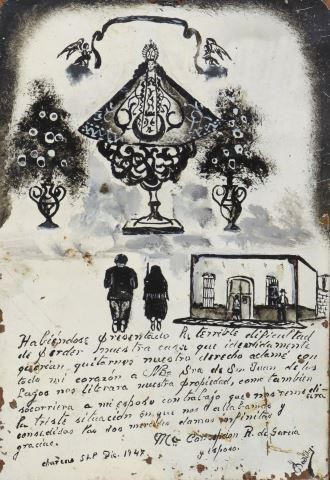 Habiéndose presentado la terrible dificultad
de perder nuestra casa que indevidamente
querian quitarnos nuestro derecho aclamé con
todo mi corazón a Ntra Sra de Sn Juan de los
Lagos nos librara nuestra propiedad, como tambien
socorriera a mi esposo con trabajo que nos remediara
la triste situación en que nos allabamos y
consedidas las dos mercedes damos infinitas
gracias.
Ma Concepcion R. de Garcia
y esposo.
charcas S.L.P. Dic. 1947